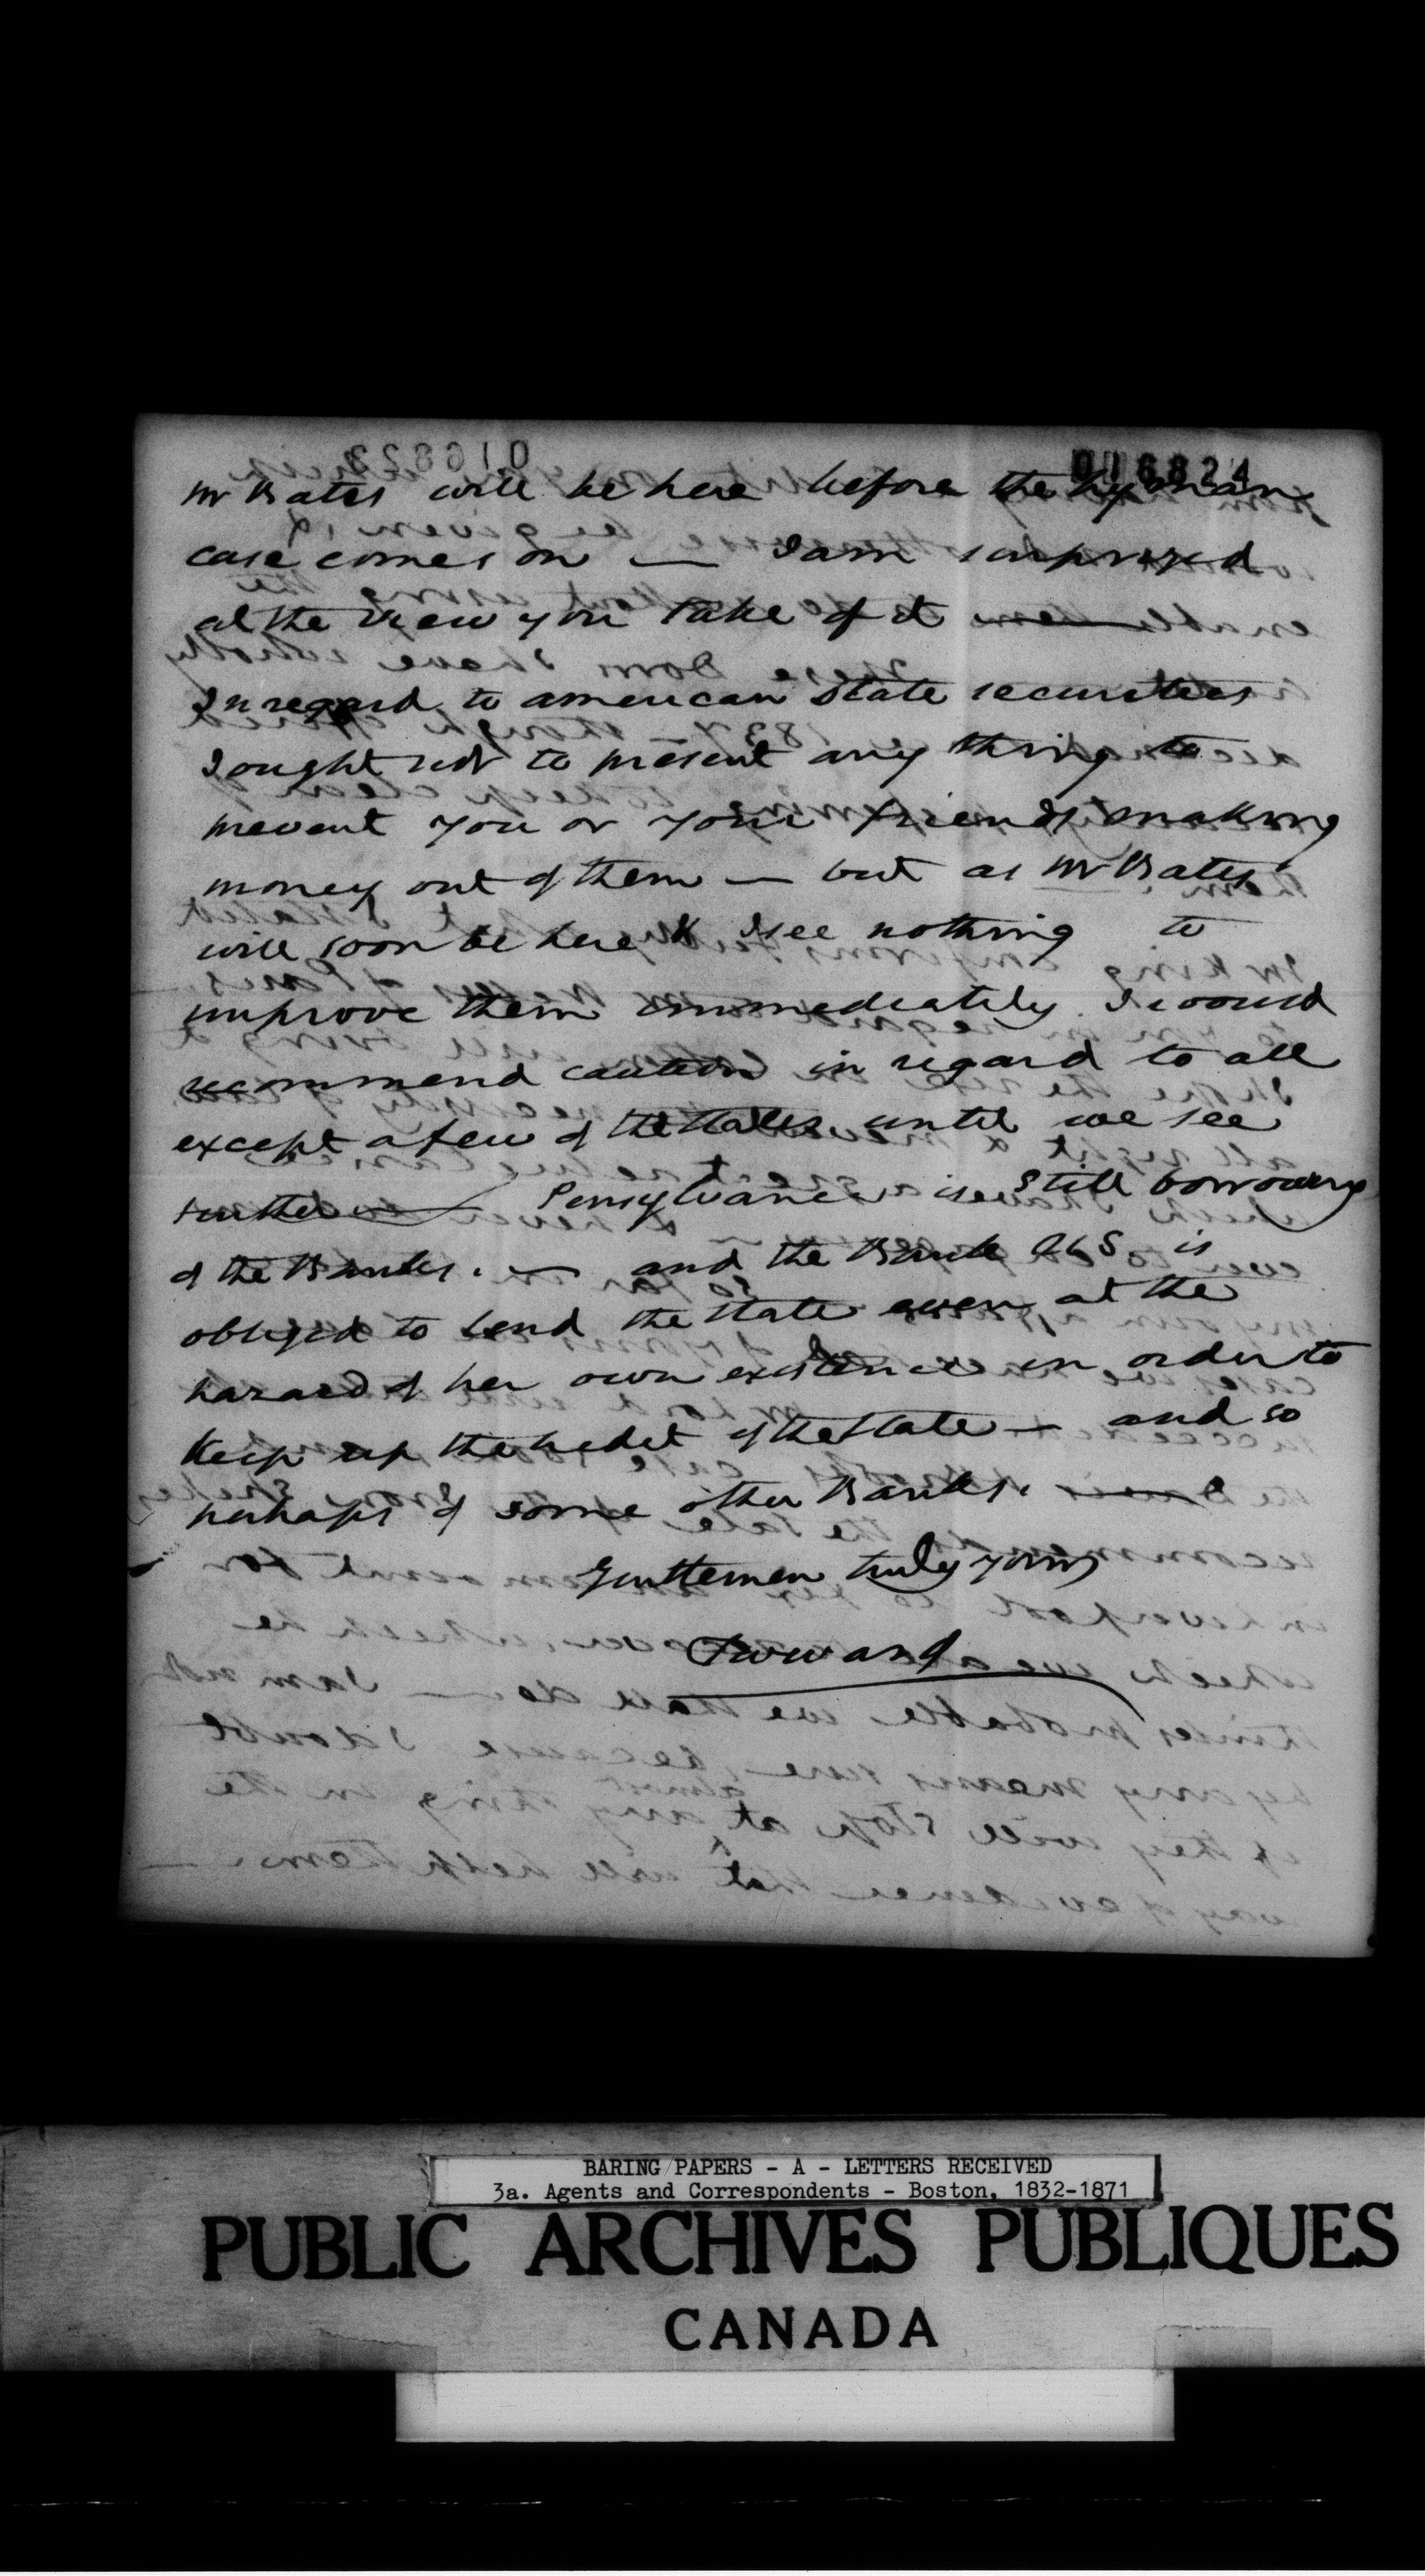 016824
Mr Bates will be here before the Hyman
case comes on — I am surprized
at the view you take of it —
In regard to american State securities
I ought not to present any thing to
prevent you or your friends making
money out of them — but as Mr Bates
will soon be here & I see nothing to
improve them immediately I would
recommend caution in regard to all
except a few of the States until we see
further — Pensylvania is still borrowing
of the Banks. — and the Bank U S. is
obliged to lend the State even at the
hazard of her own existence in order to
keep up the credit of the State — and so
perhaps of some other Banks. —
Gentlemen truly yours
TWWard
BARING PAPERS - A - LETTERS RECEIVED
3a. Agents and Correspondents - Boston, 1832-1871
PUBLIC ARCHIVES PUBLIQUES
CANADA